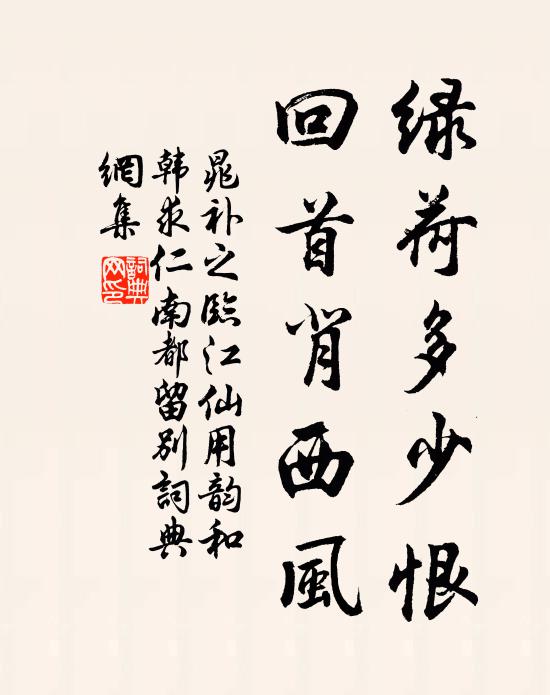 绿荷多少恨
回首背西風
晁补之臨江仙用韵和
韩求仁南都留别詞典
網集
詞典
网印